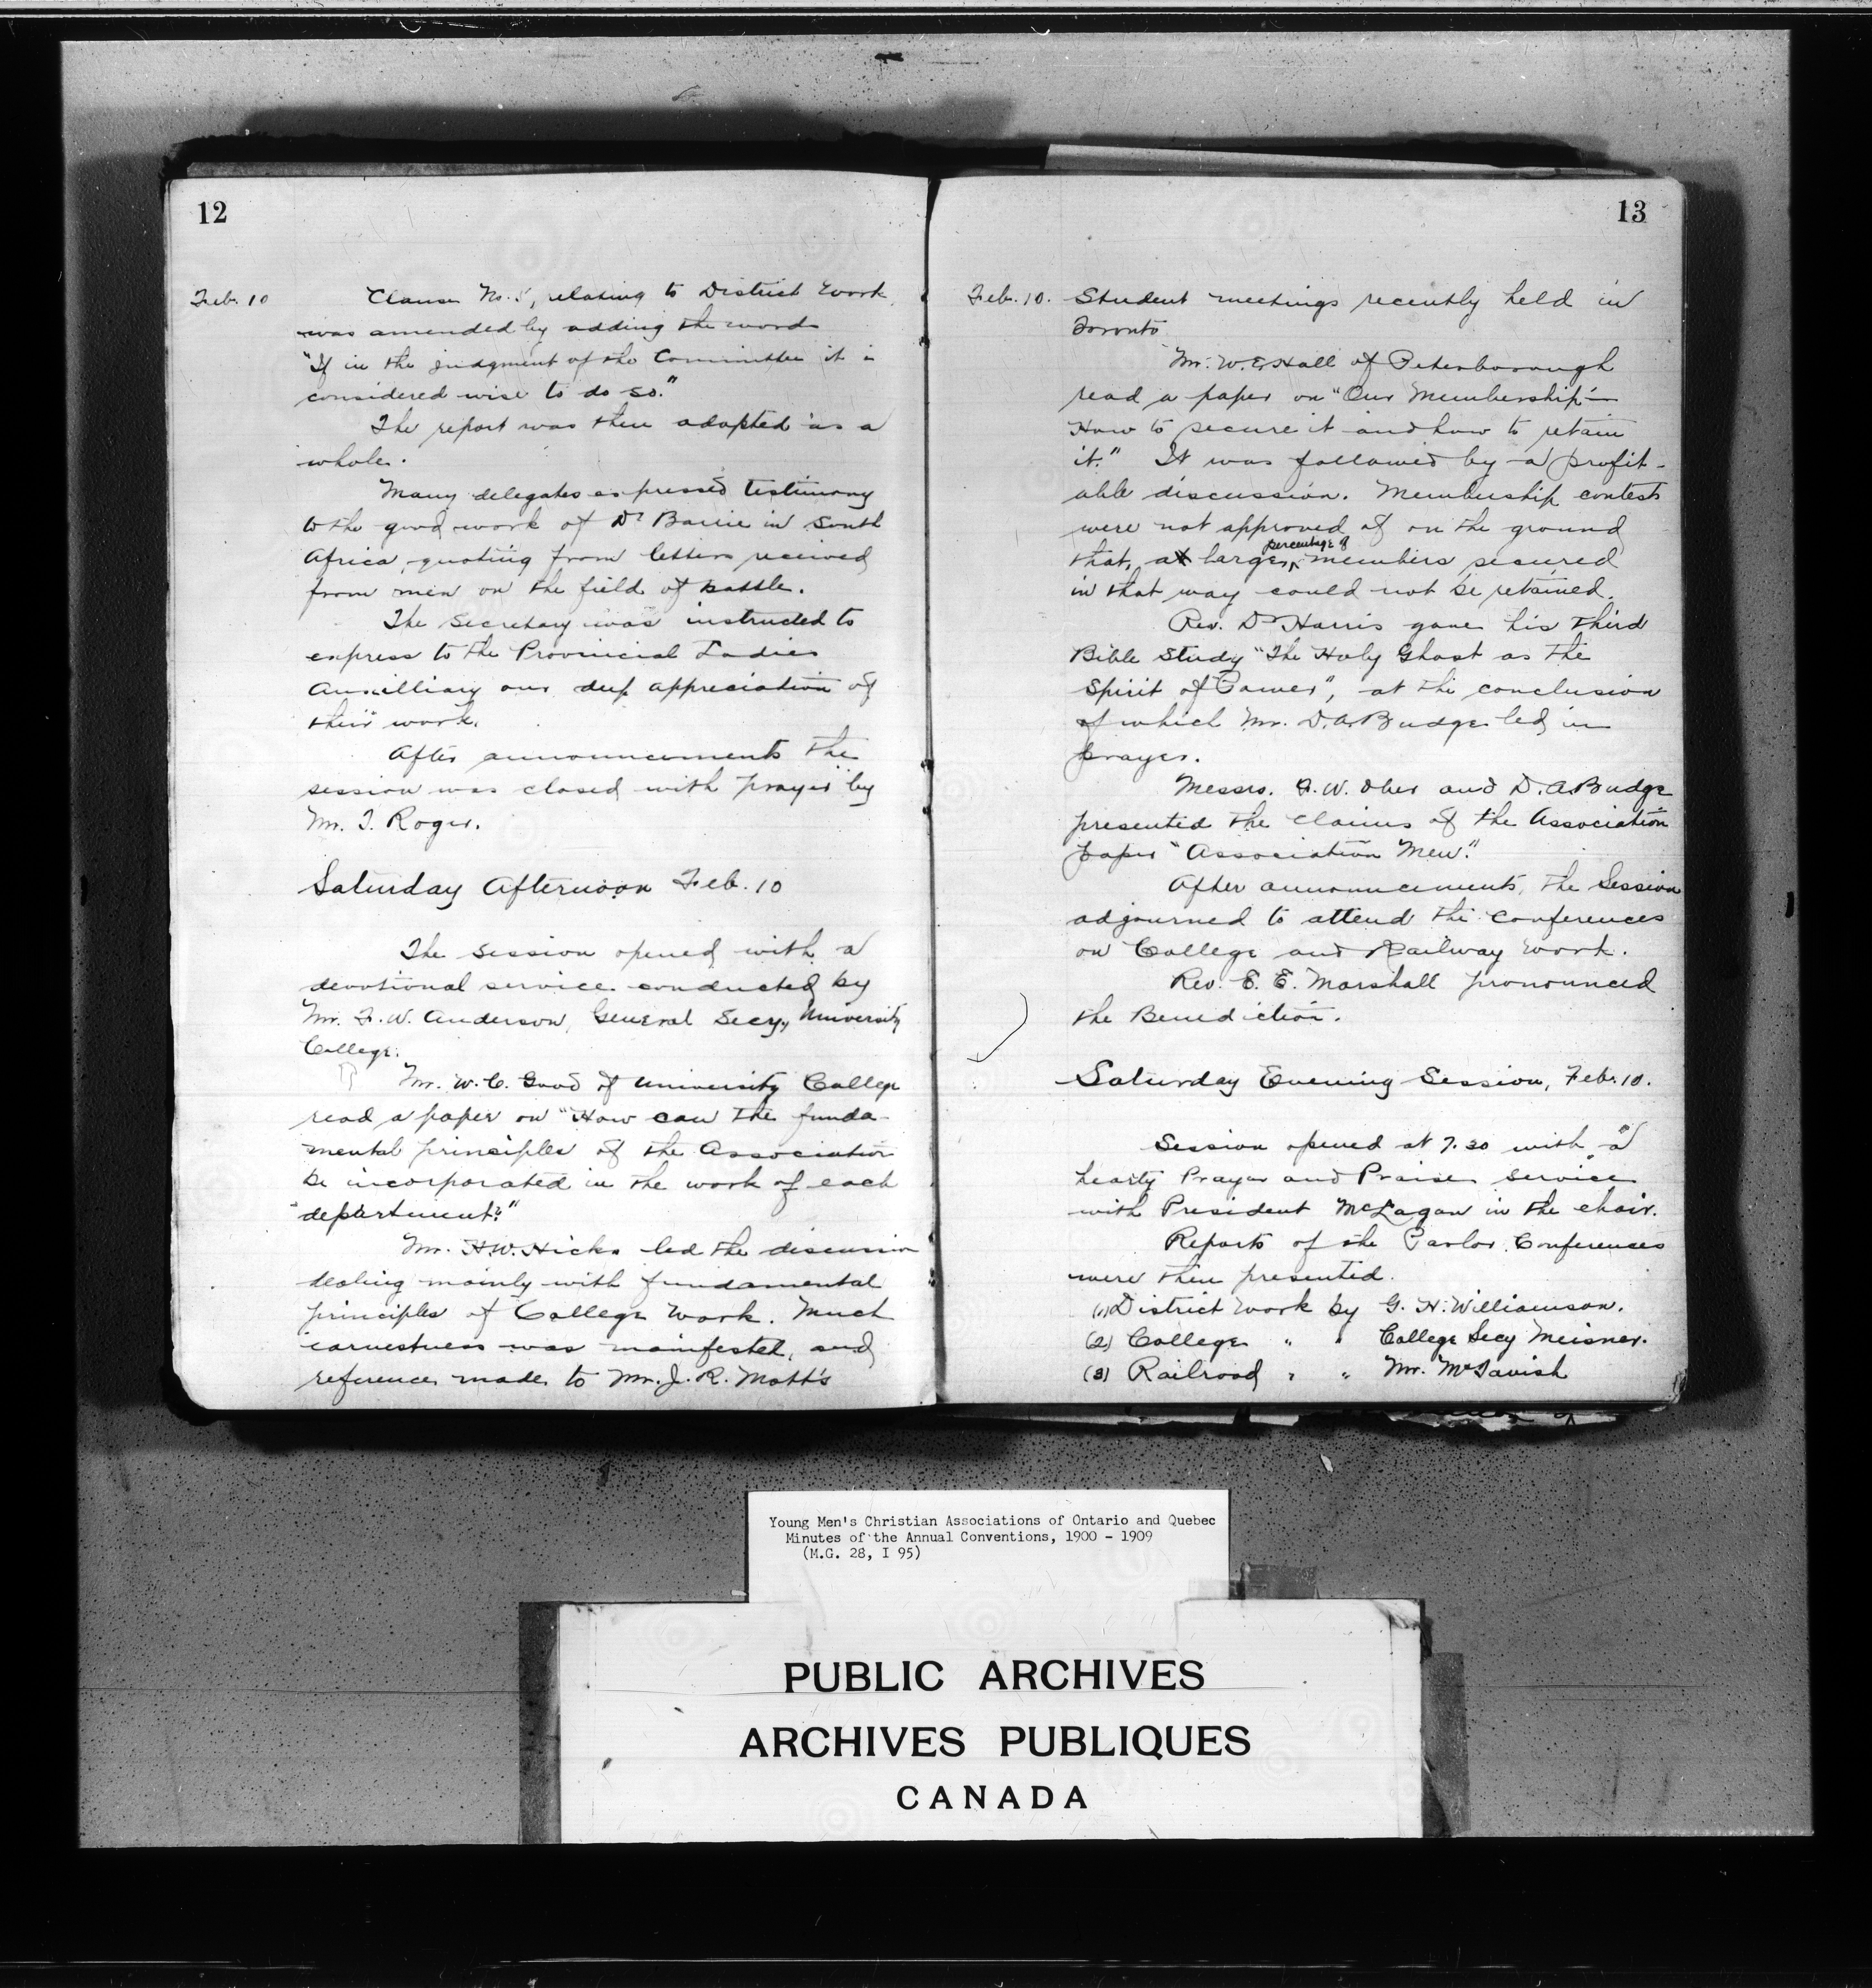 12
Feb. 10 Clause No. 5, relating to District Work,
was amended by adding the words
"If in the judgment of the Committee it is
considered wise to do so."
The report was then adopted as a
whole.
Many delegates expressed testimony
to the good work of Dr Barrie in South
Africa, quoting from letters received
from men on the field of battle.
The Secretary was instructed to
express to the Provincial Ladies
Auxilliary our deep appreciation of
their work.
After announcements the
session was closed with prayer by
Mr. T. Roger.
Saturday Afternoon Feb. 10
The session opened with a
devotional service conducted by
Mr. F. W. Anderson, General Secy., University
College.
Mr. W. C. Good of University College
read a paper on "How can the funda-
mental principles of the Association
be incorporated in the work of each
department?"
Mr. H.W. Hicks led the discussion
dealing mainly with fundamental
principles of College Work. Much
earnestness was manifested, and
reference made to Mr. J. R. Mott's
13
Feb. 10. Student meetings recently held in
Toronto
Mr. W. E. Hall of Peterborough
read a paper on "Our Membership—
How to secure it and how to retain
it." It was followed by a profit-
able discussion. Membership contests
were not approved of on the ground
that, a large percentage of members secured
in that way could not be retained.
Rev. Dr Harris gave his third
Bible Study "The Holy Ghost as the
Spirit of Power", at the conclusion
of which Mr. D. A. Budge led in
prayer.
Messrs. F. W. Ober and D. A. Budge
presented the claims of the Association
paper "Association Men."
After announcements, the Session
adjourned to attend the conferences
on College and Railway Work.
Rev. E. E. Marshall pronounced
the Benediction.
Saturday Evening Session, Feb. 10.
Session opened at 7.30 with a
hearty Prayer and Praise service
with President McLagan in the chair.
Reports of the Parlor Conferences
were then presented.
(1) District Work by G. H. Williamson.
(2) College " " College Secy Meisner.
(3) Railroad " " Mr. McTavish
Young Men's Christian Associations of Ontario and Quebec
Minutes of the Annual Conventions, 1900 - 1909
(M.G. 28, I 95)
PUBLIC ARCHIVES
ARCHIVES PUBLIQUES
CANADA